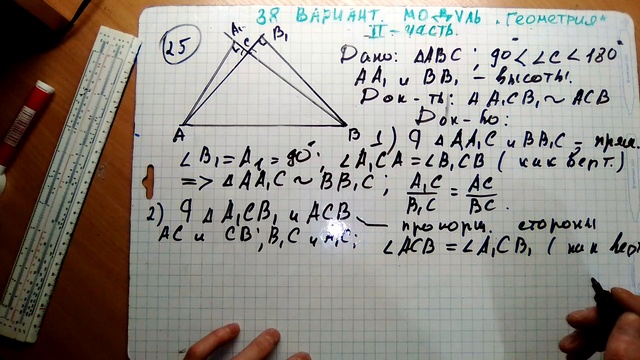 38 ВАРИАНТ. МОДУЛЬ „Геометрия“
II - часть.
25
A₁
B₁
C
A
B
Дано: ΔABC; 90° < ∠C < 180°
AA₁ и BB₁ – высоты.
Док-ть: Δ A₁CB₁ ~ ACB
Док-во:
1) Δ AA₁C и BB₁C = прям.
∠B₁ = A₁ = 90°; ∠A₁CA = ∠B₁CB ( как верт.)
=> Δ AA₁C ~ BB₁C; A₁C/B₁C = AC/BC.
2) Δ A₁CB₁ и ACB
пропорц. стороны
AC и CB; B₁C и A₁C;
∠ACB = ∠A₁CB₁ ( как верт